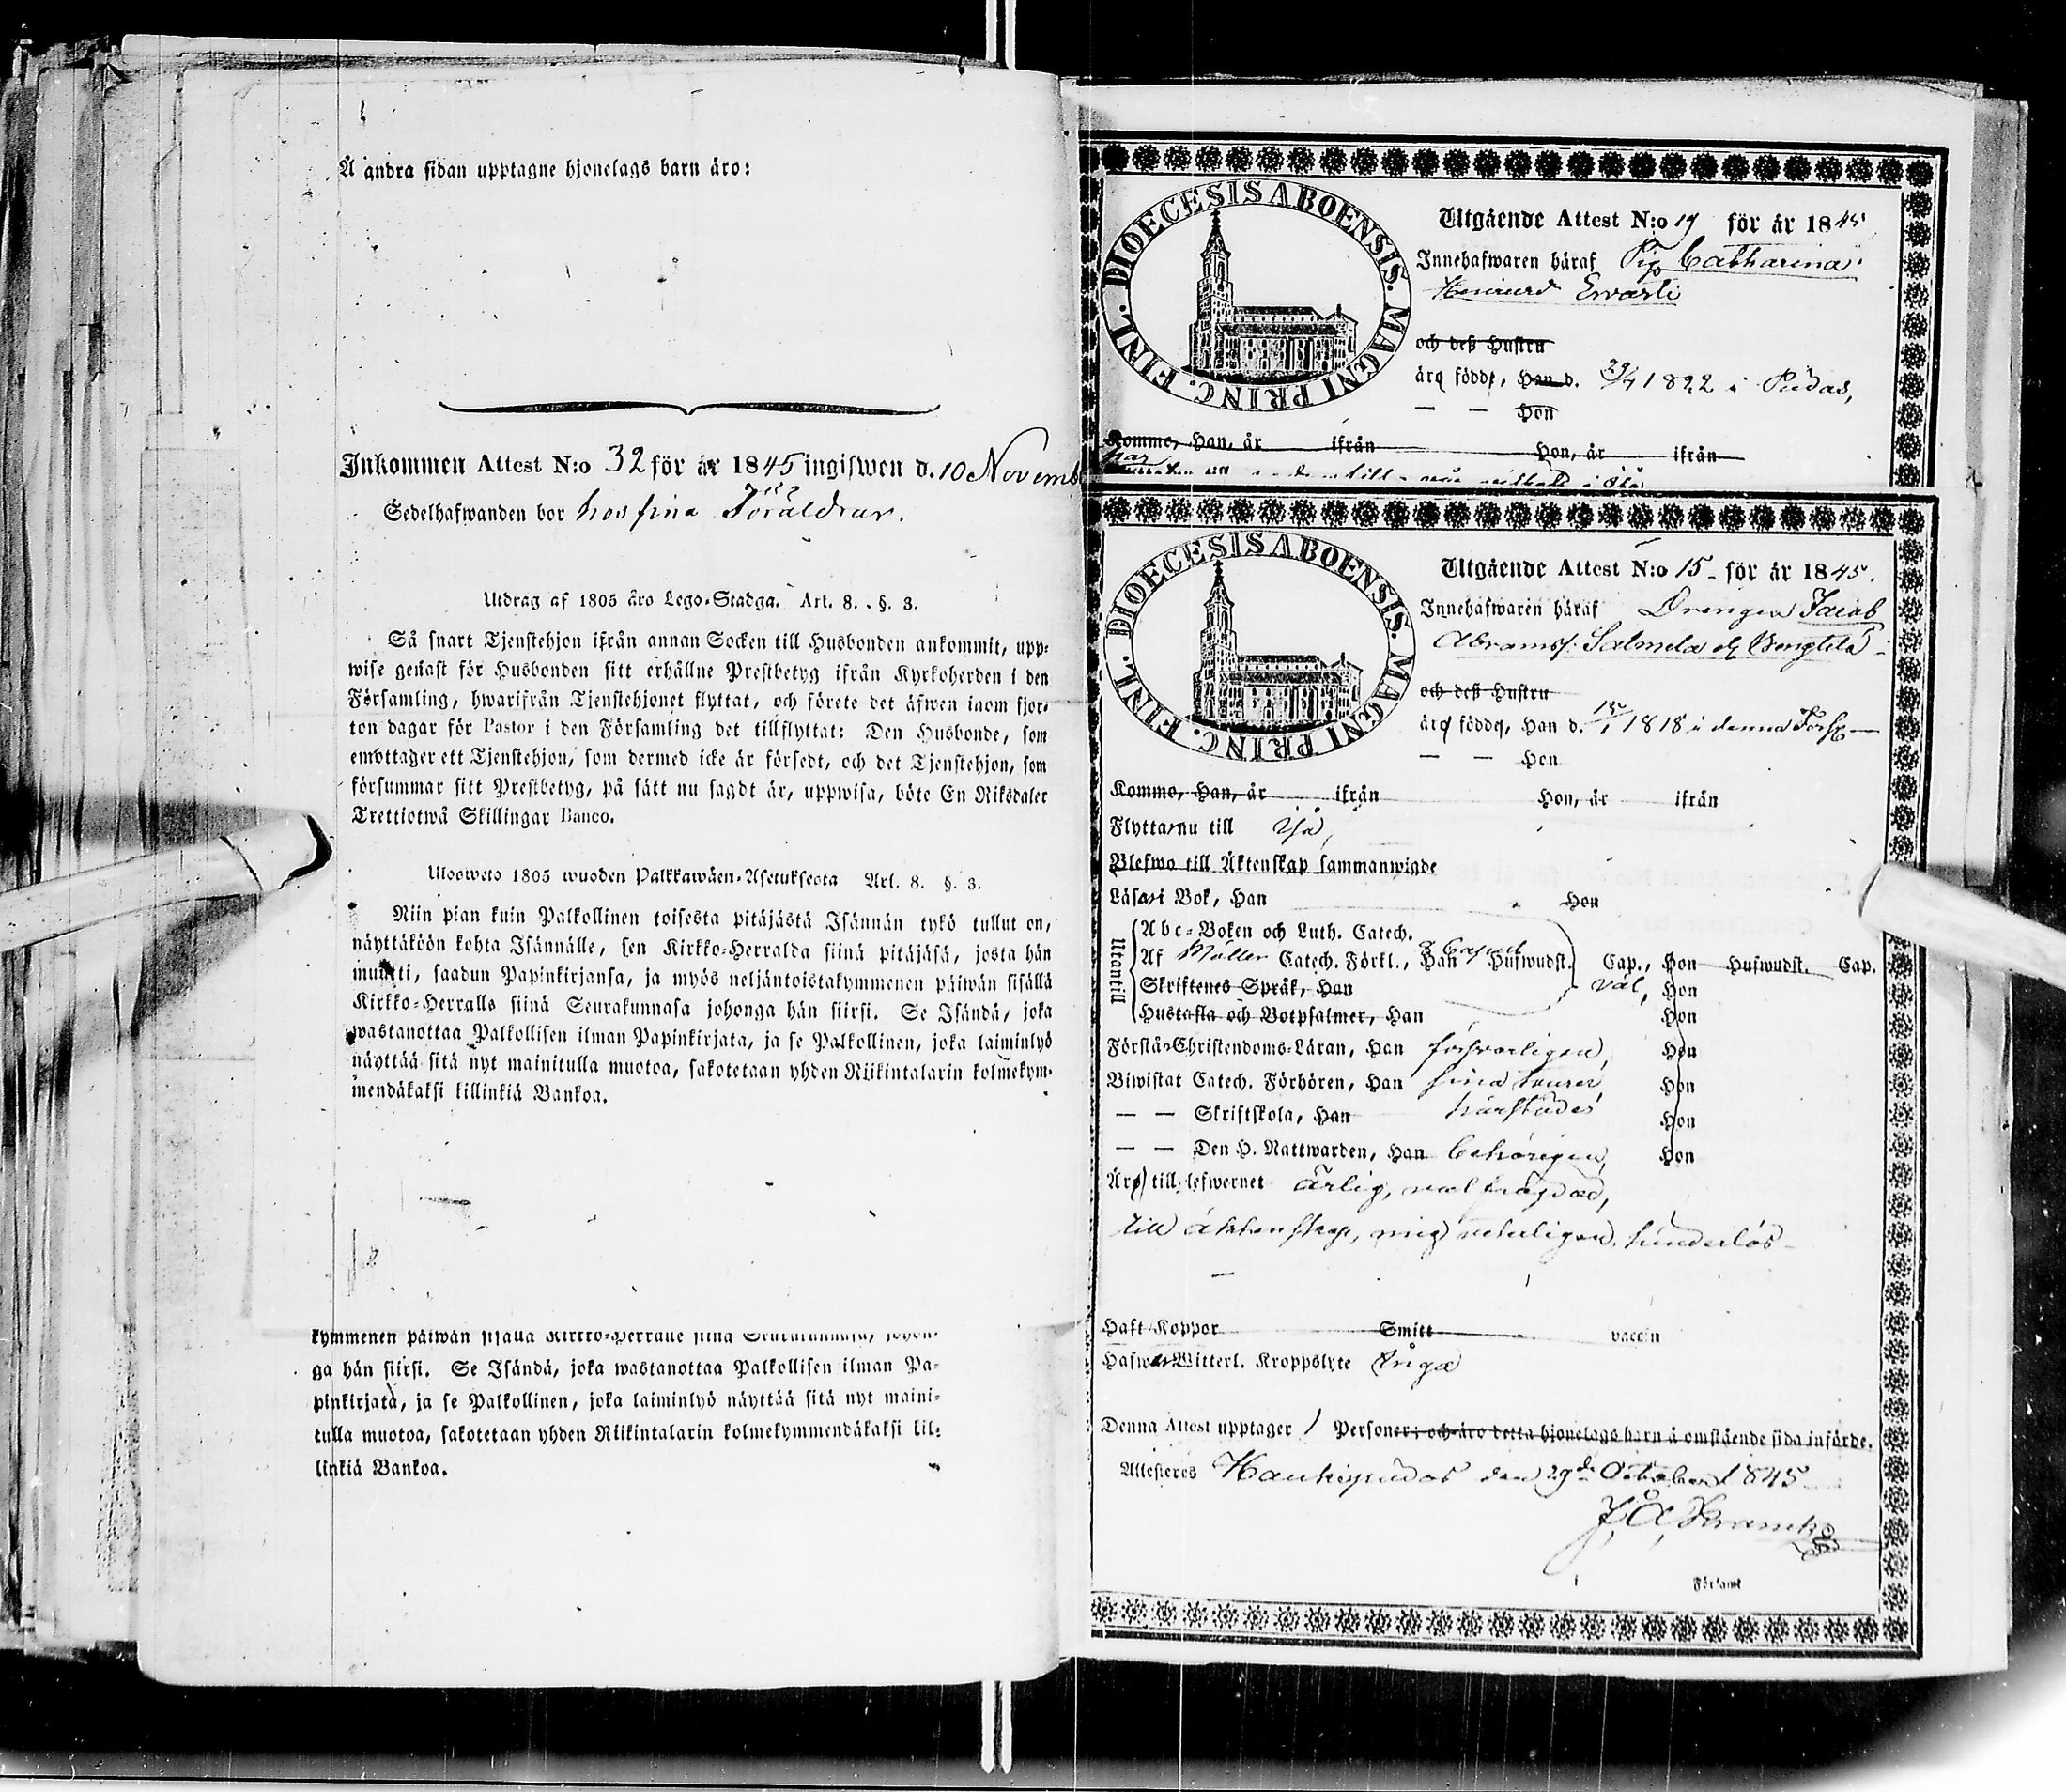 Å andra sidan upptagne hjonelags barn äro:
Inkommen Attest N:o 32 för år 1845 ingifwen d. 10 Novemb
Sedelhafwanden bor hos sina Föräldrar.
Utdrag af 1805 års Lego-Stadga. Art. 8. §. 3.
Så snart Tjenstehjon ifrån annan Socken till Husbonden ankommit, upp-
wise genast för Husbonden sitt erhållne Prestbetyg ifrån Kyrkoherden i den
Församling, hwarifrån Tjenstehjonet flyttat, och förete det äfwen inom fjor-
ton dagar för Pastor i den Församling det tillflyttat: Den Husbonde, som
emottager ett Tjenstehjon, som dermed icke är försedt, och det Tjenstehjon, som
försummar sitt Prestbetyg, på sätt nu sagdt är, uppwisa, böte En Riksdaler
Trettiotwå Skillingar Banco.
Ulosweto 1805 wuoden Palkkawäen-Asetuksesta Art. 8. §. 3.
Niin pian kuin Palkollinen toisesta pitäjästä Isännän tykö tullut on,
näyttäköön kohta Isännälle, sen Kirkko-Herralda siinä pitäjäsä, josta hän
muutti, saadun Papinkirjansa, ja myös neljäntoistakymmenen päiwän sisällä
Kirkko-Herralle siinä Seurakunnasa johonga hän siirsi. Se Isändä, joka
wastanottaa Palkollisen ilman Papinkirjata, ja se Palkollinen, joka laiminlyö
näyttää sitä nyt mainitulla muotoa, sakotetaan yhden Riikintalarin kolmekym-
mendäkaksi killinkiä Bankoa.
kymmenen päiwän sisällä Kirkko-Herralle siinä Seurakunnasa, johon-
ga hän siirsi. Se Isändä, joka wastanottaa Palkollisen ilman Pa-
pinkirjata, ja se Palkollinen, joka laiminlyö näyttää sitä nyt maini-
tulla muotoa, sakotetaan yhden Riikintalarin kolmekymmendäkaksi kil-
linkiä Bankoa.
DIOECESIS ABOENSIS. MAGNI PRINC. FINL.
Utgående Attest N:o 19 för år 1845
Innehafwaren häraf Pig. Catharina
Ewarti
och deß Hustru
äro födde, Han d. 29/4 1822 i Pudas,
— — Hon
Komme, Han, år ifrån Hon, år ifrån
har
DIOECESIS ABOENSIS. MAGNI PRINC. FINL.
Utgående Attest N:o 15 för år 1845.
Innehafwaren häraf Drengen Jacob
Abramss. Salmela
och deß Hustru
äro födde, Han d. 1818 i denna Förs.
— — Hon
Komme, Han, år ifrån Hon, år ifrån
Flytta nu till Ijå,
Blefwo till Äktenskap sammanwigde
Läsa i Bok, Han Hon
Utantill
Abc-Boken och Luth. Catech.
Af Möller Catech. Förkl., Han 3 Hufwudst. Cap., Hon Hufwudst. Cap.
Skriftenes Språk, Han väl, Hon
Hustafla och Botpsalmer, Han Hon
Förstå Christendoms-Läran, Han försvarligen, Hon
Biwistat Catech. Förhören, Han sina Hon
— — Skriftskola, Han härstädes Hon
— — Den H. Nattwarden, Han behörigen, Hon
Äro till lefwernet ärlig, väl frägdad,
till äktenskap, mig veterligen, hinderlös
Haft Koppor Smitt vaccin
Hafwa Witterl. Kroppslyte Inga
Denna Attest upptager 1 Personer; och äro detta hjonelags barn å omstående sida införde.
Attesteras Haukipudas den 29de October 1845
Församl